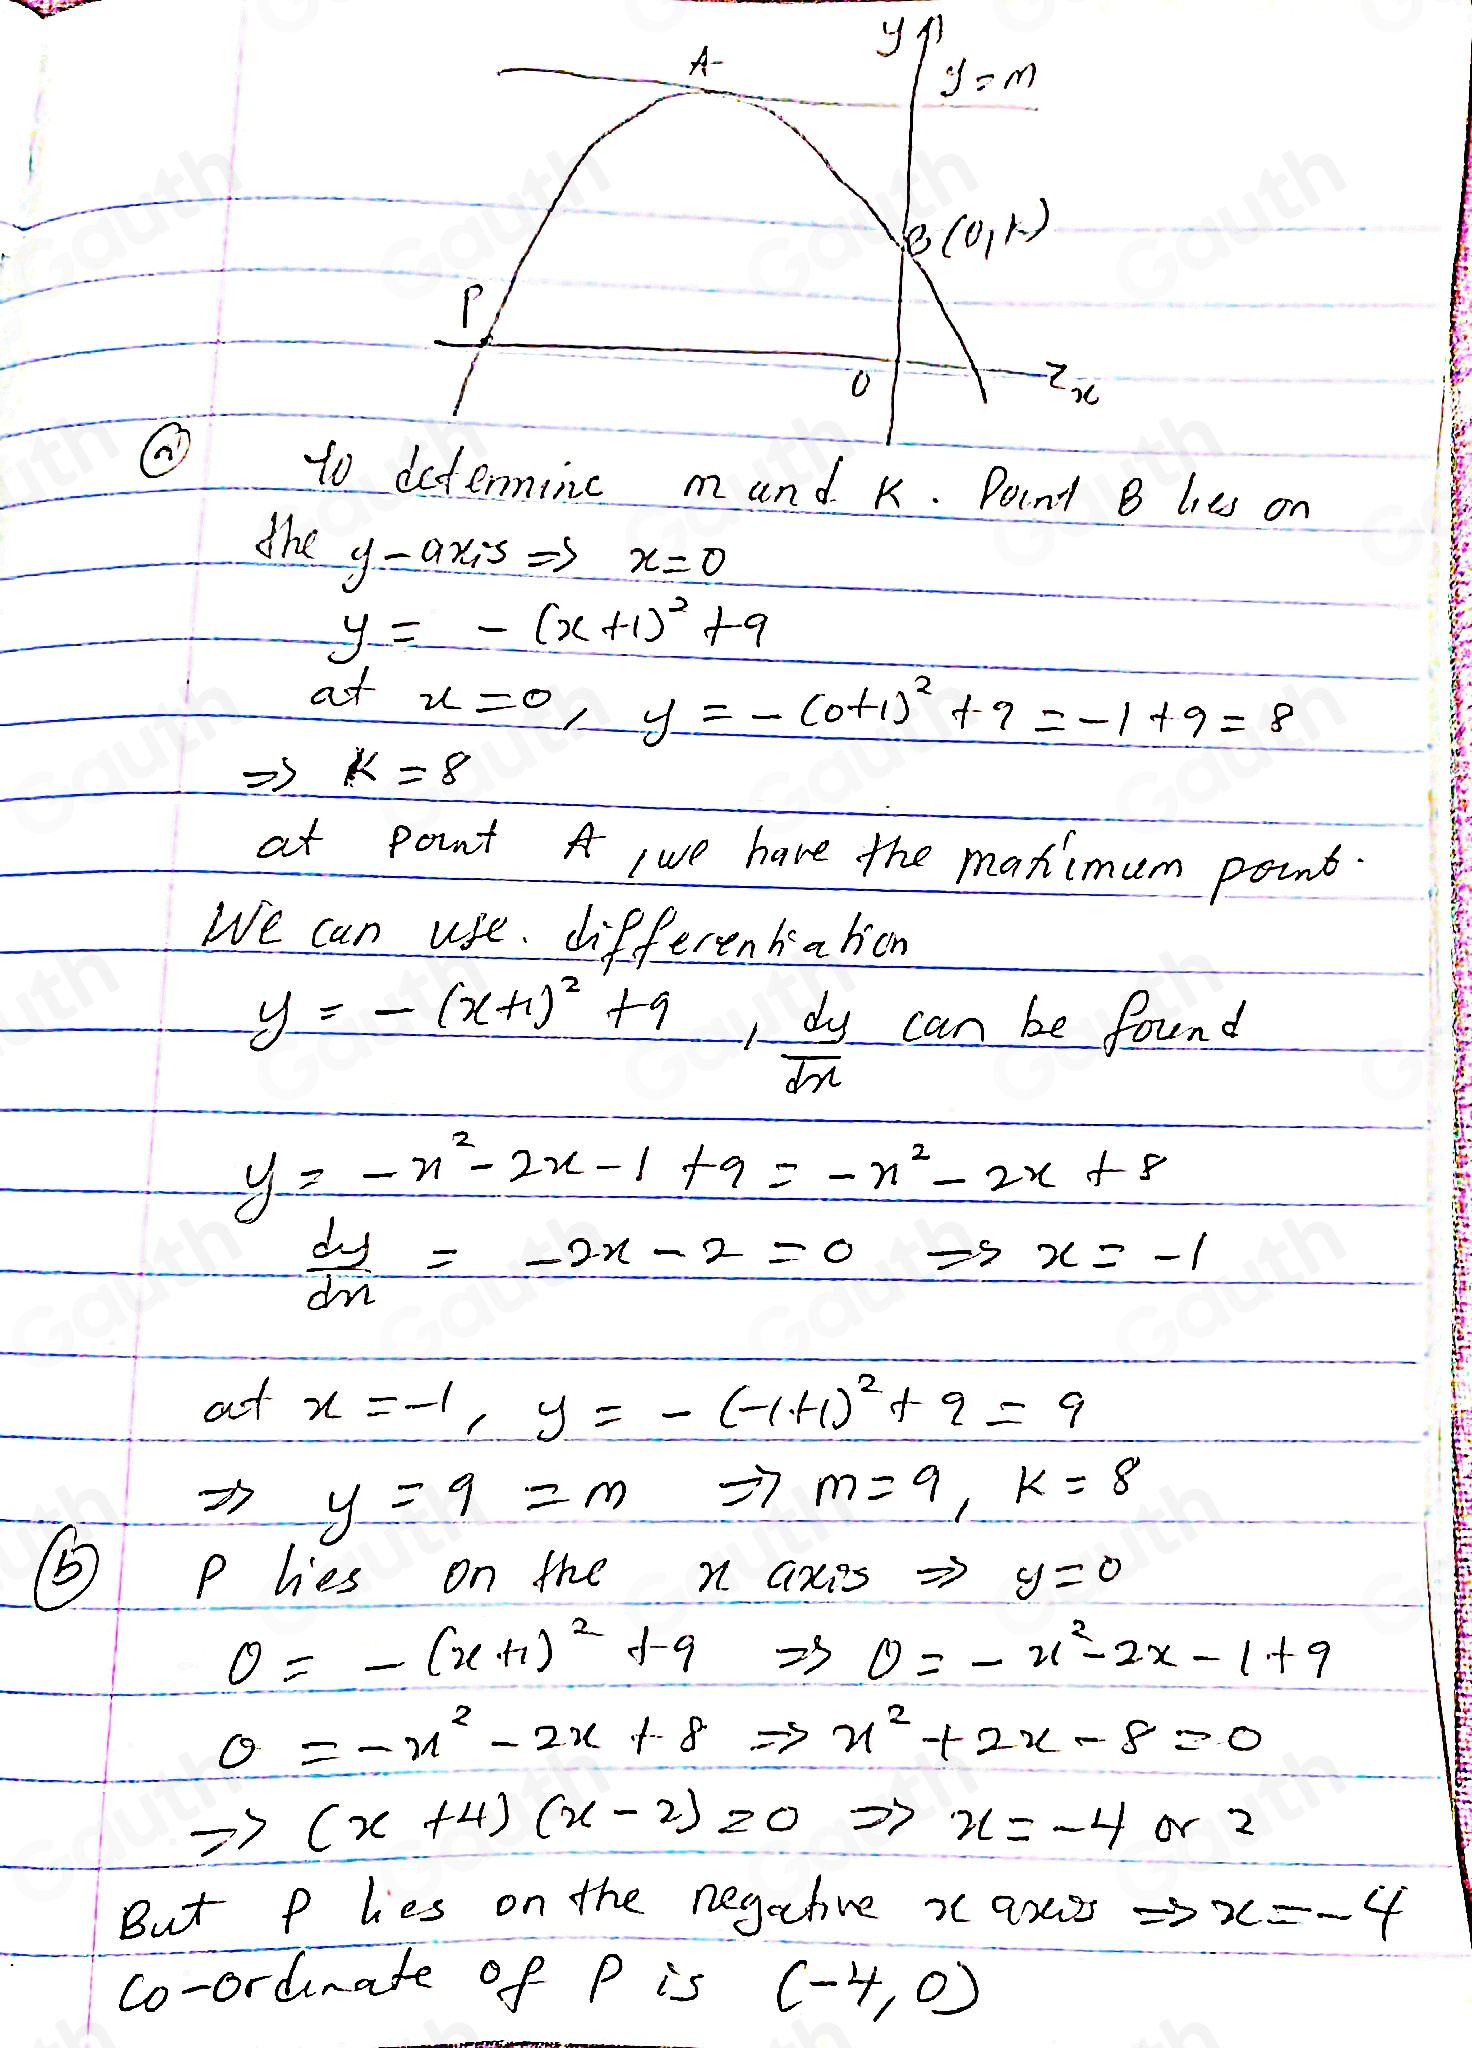 A
y
y = m
B(0, k)
P
0
x
(a) to determine m and k. Point B lies on
the y-axis => x=0
y = -(x+1)² +9
at x=0, y = -(0+1)² +9 = -1+9 = 8
=> K = 8
at point A, we have the maximum point.
We can use. differentiation
y = -(x+1)² +9, dy/dx can be found
y = -x² - 2x - 1 + 9 = -x² - 2x + 8
dy/dx = -2x - 2 = 0 => x = -1
at x = -1, y = -(-1+1)² + 9 = 9
=> y = 9 = m => m = 9, K = 8
(b) P lies on the x axis => y=0
0 = -(x+1)² +9 => 0 = -x² - 2x - 1 + 9
0 = -x² - 2x + 8 => x² + 2x - 8 = 0
=> (x+4)(x-2) = 0 => x = -4 or 2
But P lies on the negative x axis => x = -4
co-ordinate of P is (-4, 0)
Gauth